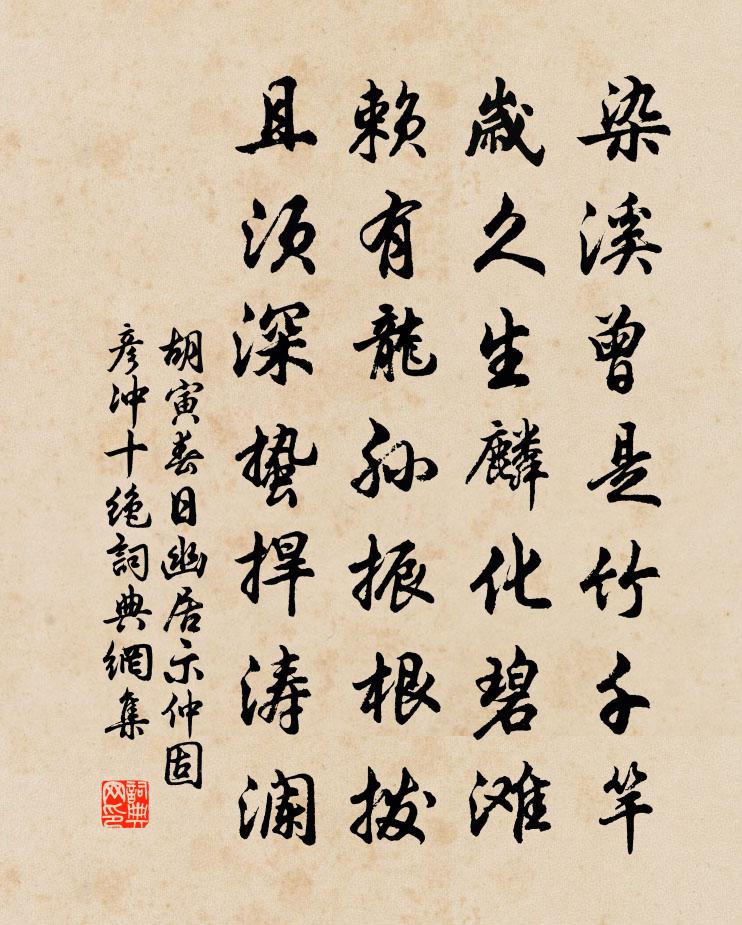 染溪曾是竹千竿
歳久生麟化碧滩
赖有龍孙振根拨
且须深蛰捍涛澜
胡寅春日幽居示仲固
彦冲十绝詞典網集
詞典网印